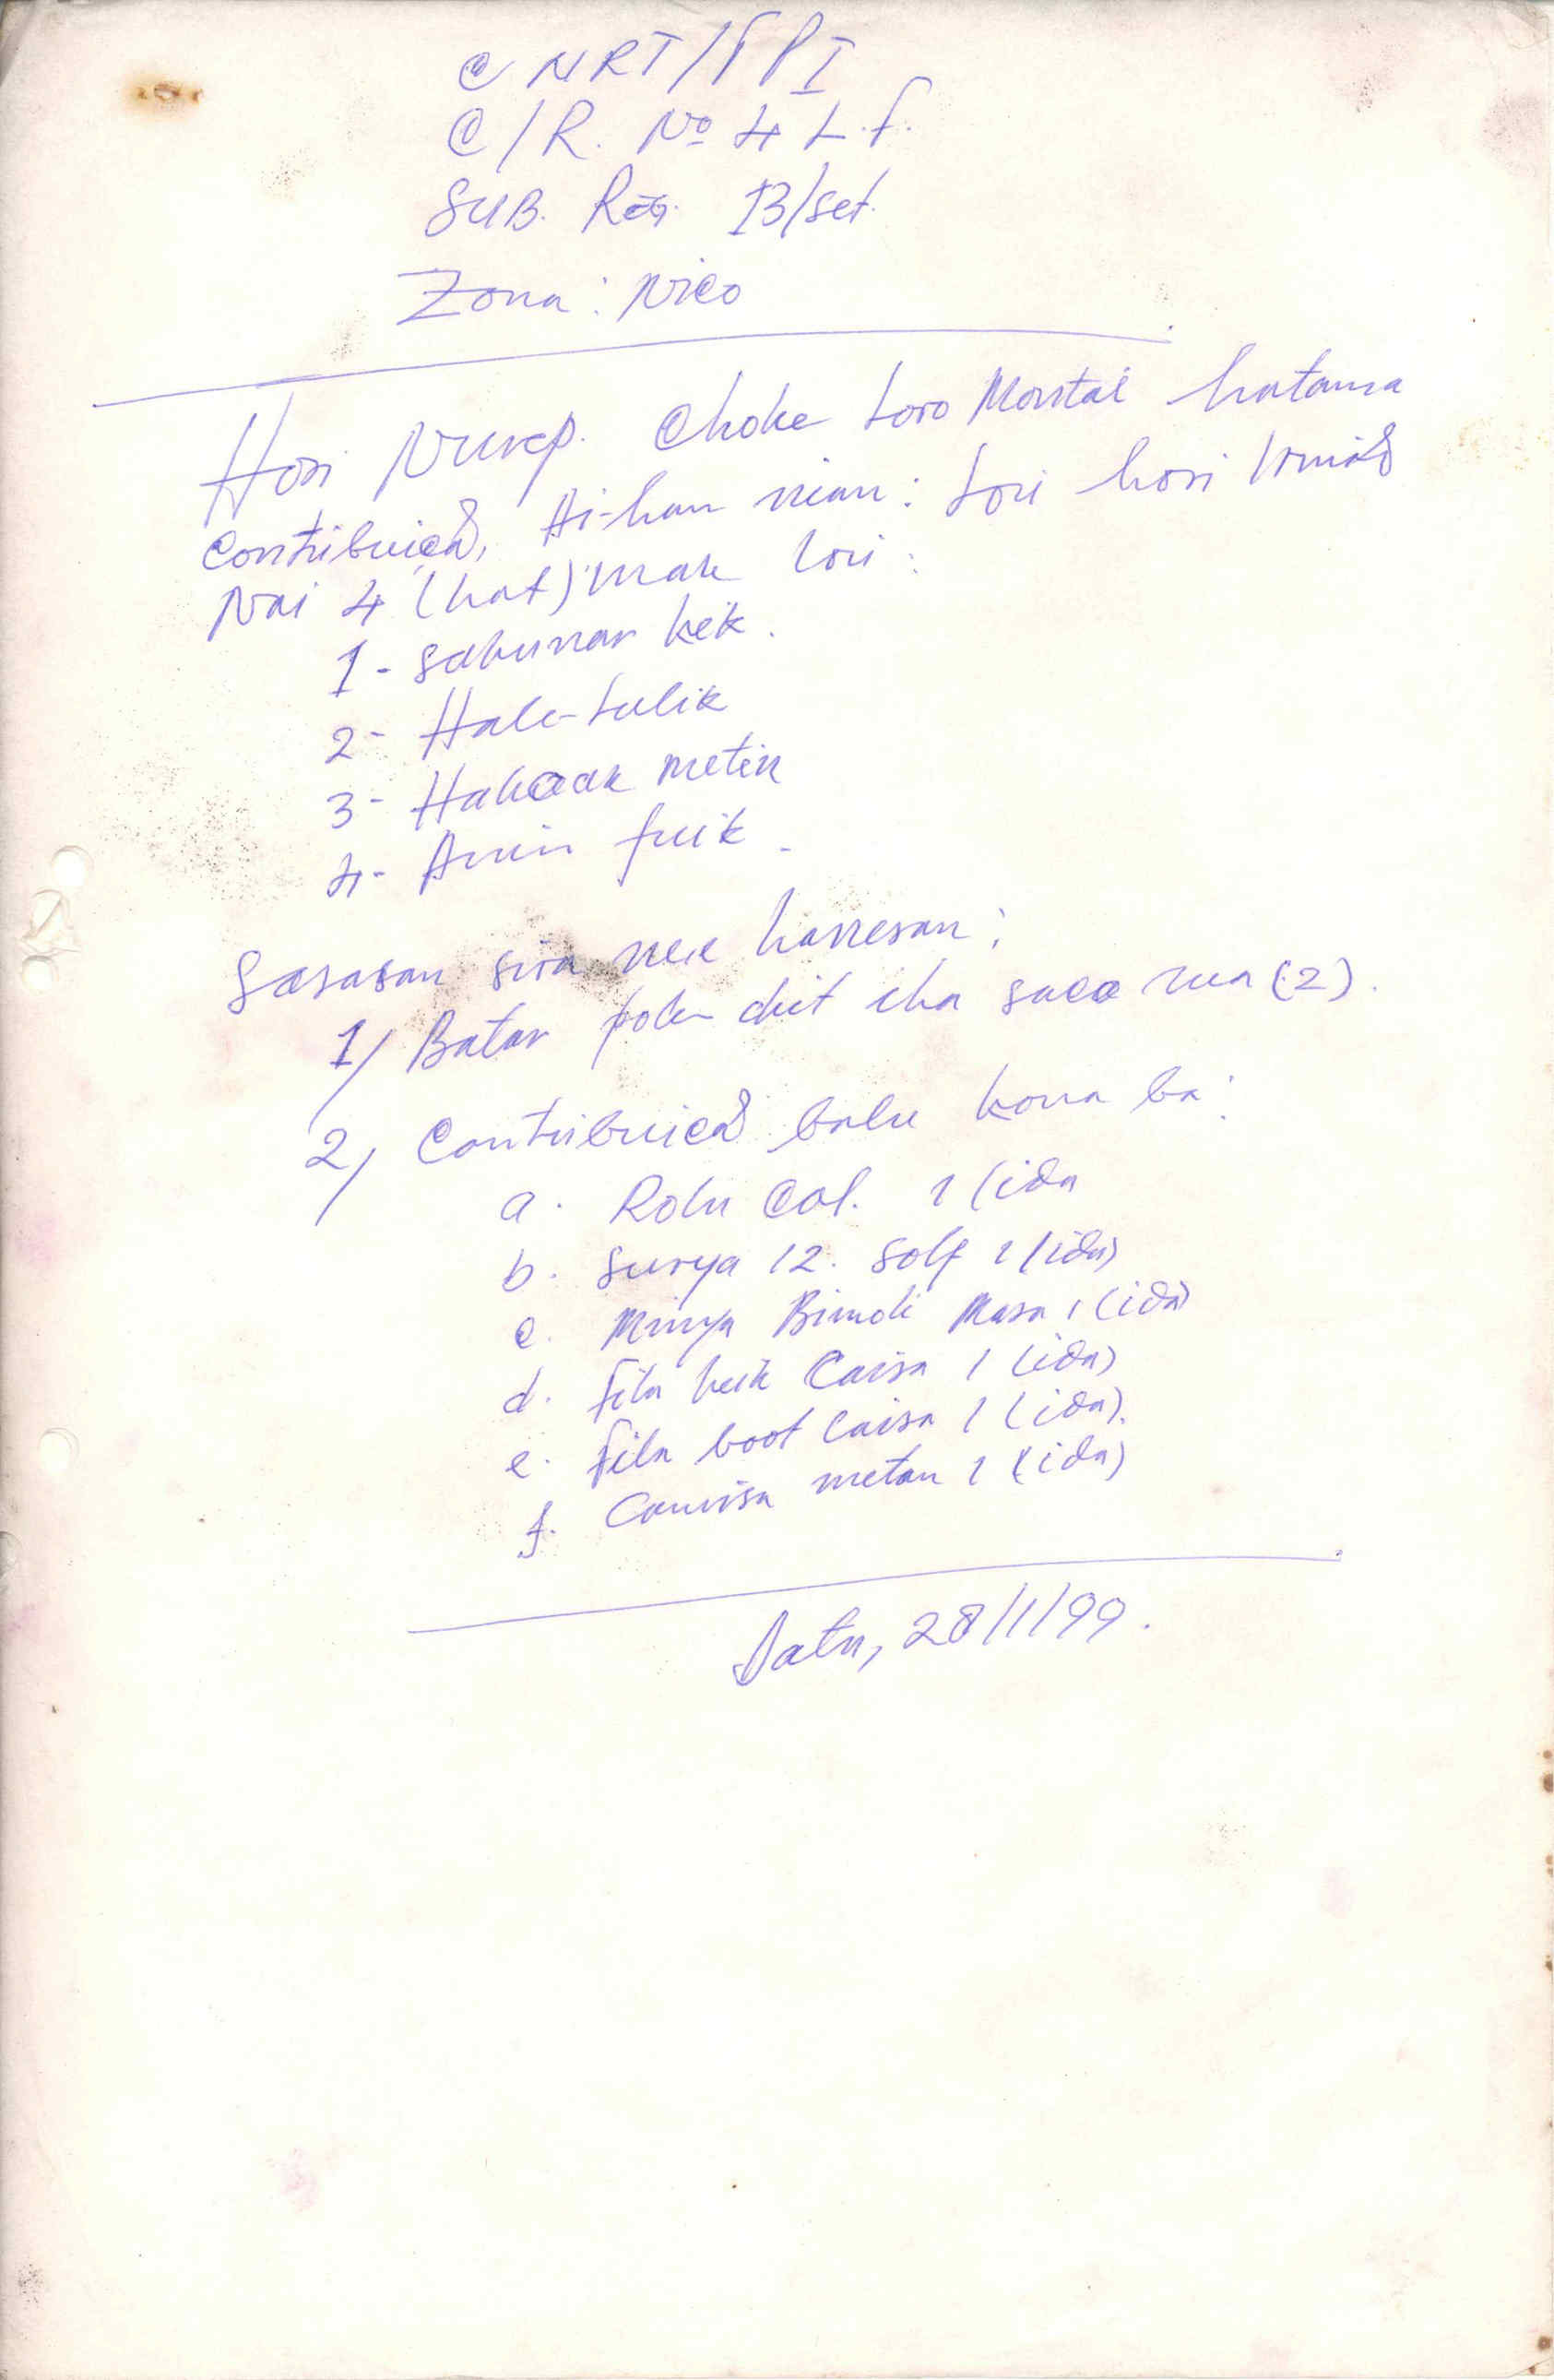 CNRT/FPI
C/R. Nº 4 L.F.
SUB. Reg. 13/set.
Zona: Nico
Hosi Nurep. Choke Loro Montai hatama
Contribuicã, Ai-han nian: Lori hosi Irmãs
Nai 4 (hat) mak lori:
1- Sabunar kek.
2- Hale-Lulik
3- Hakaak metin
4- Anin fuik.
Sasasan sira nee hanesan:
1/ Batar hola dit iha saca rua (2).
2/ Contribuicã balu kona ba:
a. Rolu Col. 1 (ida
b. Surya 12. Solf 1 (ida)
c. Minya Bimoli Masa 1 (ida)
d. fila kiik Caisa 1 (ida)
e. fila boot Caisa 1 (ida).
f. Camisa metan 1 (ida)
Data, 28/1/99.